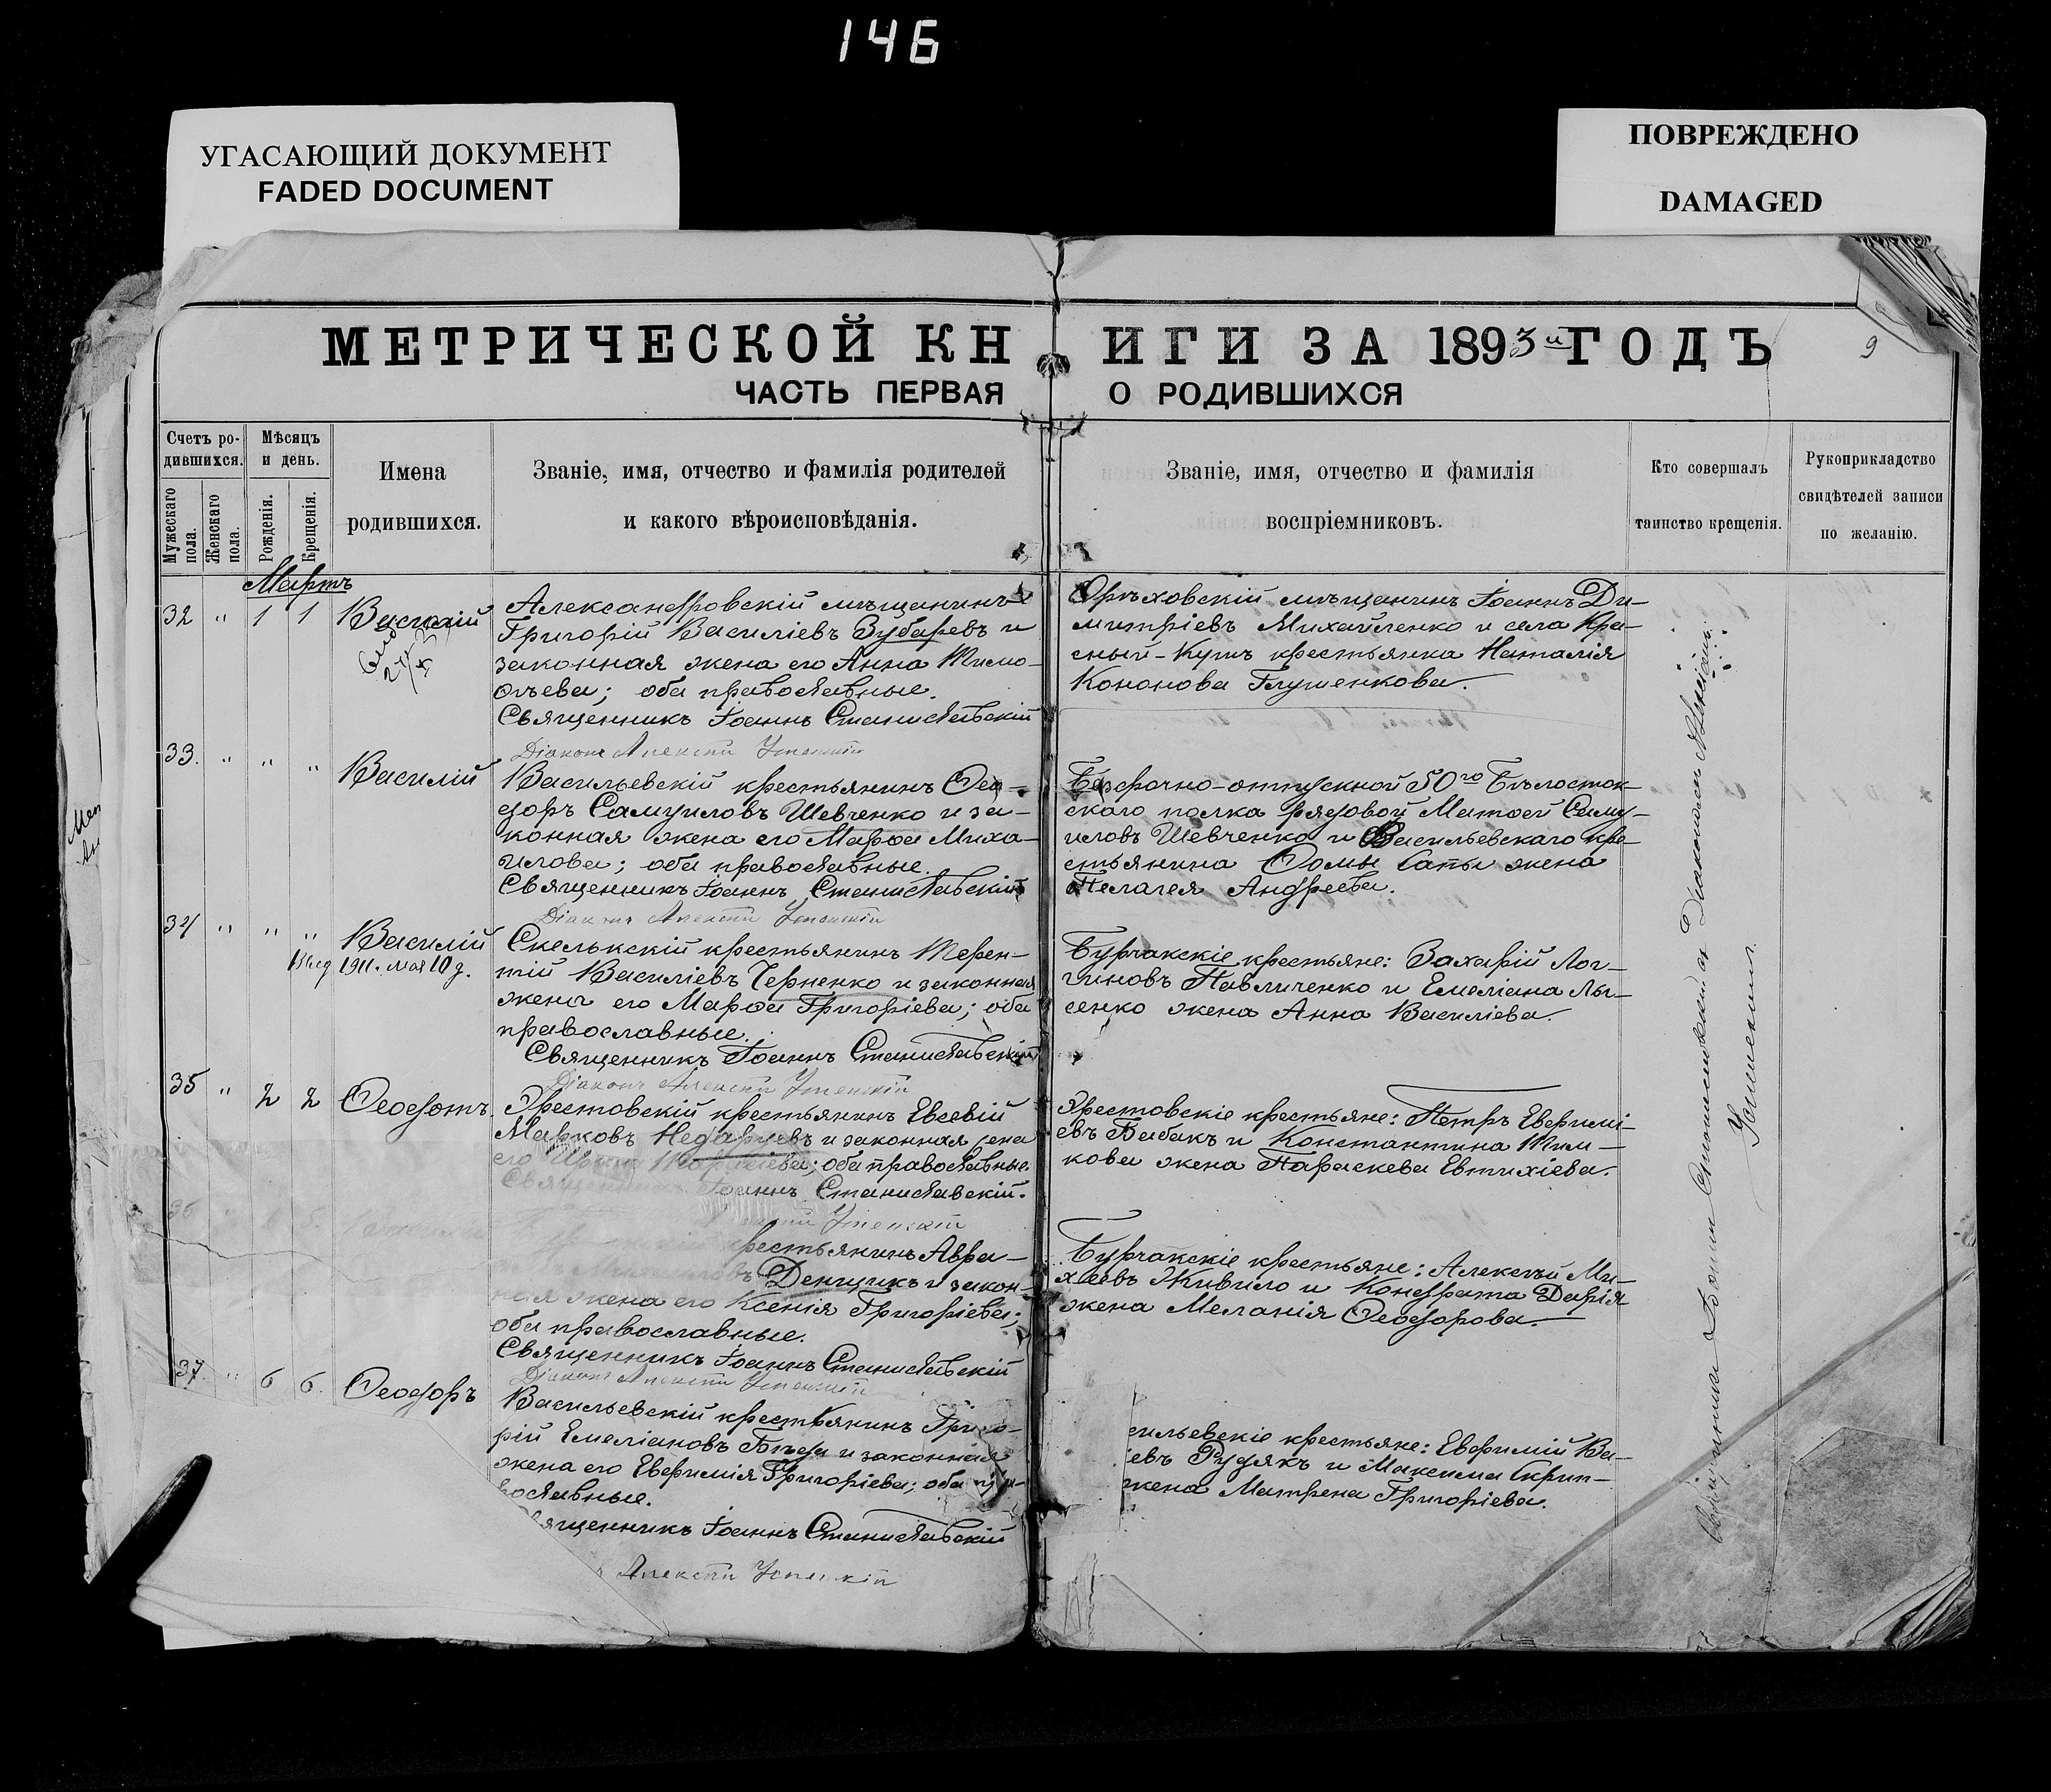 146
УГАСАЮЩИЙ ДОКУМЕНТ
FADED DOCUMENT
ПОВРЕЖДЕНО
DAMAGED
МЕТРИЧЕСКОЙ КНИГИ ЗА 1893й ГОДЪ
9
ЧАСТЬ ПЕРВАЯ О РОДИВШИХСЯ
Счетъ ро-
дившихся.
Мужескаго пола.
Женскаго пола.
Мѣсяцъ
и день.
Рожденія.
Крещенія.
Имена
родившихся.
Званіе, имя, отчество и фамилія родителей
и какого вѣроисповѣданія.
Званіе, имя, отчество и фамилія
воспріемниковъ.
Кто совершалъ
таинство крещенія.
Рукоприкладство
свидѣтелей записи
по желанію.
Мартъ
32 " 1 1 Василій
Александровскій мѣщанинъ
Григорій Василіевъ Зубаревъ и
законная жена его Анна Тимо-
ѳѣева; оба православные.
Священникъ Іоаннъ Станиславскій
Діаконъ Алексій Успенскій
Орѣховскій мѣщанинъ Іоаннъ Ди-
митріевъ Михайленко и села Кра-
сный-Кутъ крестьянка Наталія
Кононова Глущенкова.
33. " " " Василій
Васильевскій крестьянинъ Ѳео-
доръ Самуиловъ Шевченко и за-
конная жена его Марѳа Миха-
илова; оба православные.
Священникъ Іоаннъ Станиславскій
Діаконъ Алексій Успенскій
Безсрочно-отпускной 50го Бѣлосток-
скаго полка рядовой Матѳей Саму-
иловъ Шевченко и Васильевскаго кре-
стьянина Ѳомы Саты жена
Пелагея Андреева.
34 " " " Василій
1911. мая 10 д.
Скелькскій крестьянинъ Терен-
тій Василіевъ Черненко и законная
жена его Марѳа Григоріева; оба
православные.
Священникъ Іоаннъ Станиславскій
Діаконъ Алексій Успенскій
Бурчакскіе крестьяне: Захарій Лог-
гиновъ Павличенко и Емеліана Лы-
сенко жена Анна Василіева.
35 " 2 2 Ѳеодотъ.
Эрестовскій крестьянинъ Евсевій
Марковъ и законная жена
его оба православные.
Священникъ Іоаннъ Станиславскій.
Успенскій
Эрестовскіе крестьяне: Петръ Евфимі-
евъ Бабакъ и Константина Тим-
кова жена Параскева Евтихіева.
36
крестьянинъ Авра-
Денщикъ и закон-
ная жена его Ксенія Григоріева;
оба православные.
Священникъ Іоаннъ Станиславскій
Діаконъ Алексій Успенскій
Бурчакскіе крестьяне: Алексѣй Ми-
хѣевъ Живило и Кондрата Дарія
жена Меланія Ѳеодорова.
37. " 6 6. Ѳеодоръ
Васильевскій крестьянинъ Григо-
рій Емеліановъ Бѣда и законная
жена его Евфимія Григоріева; оба пра-
вославные.
Священникъ Іоаннъ Станиславскій
Алексій Успенскій
сильевскіе крестьяне: Евфимій Ва-
іевъ Рудякъ и Максима Скрип-
жена Матрена Григоріева.
Священникъ Іоаннъ Станиславскій съ Діакономъ Алексіемъ
Успенскимъ.